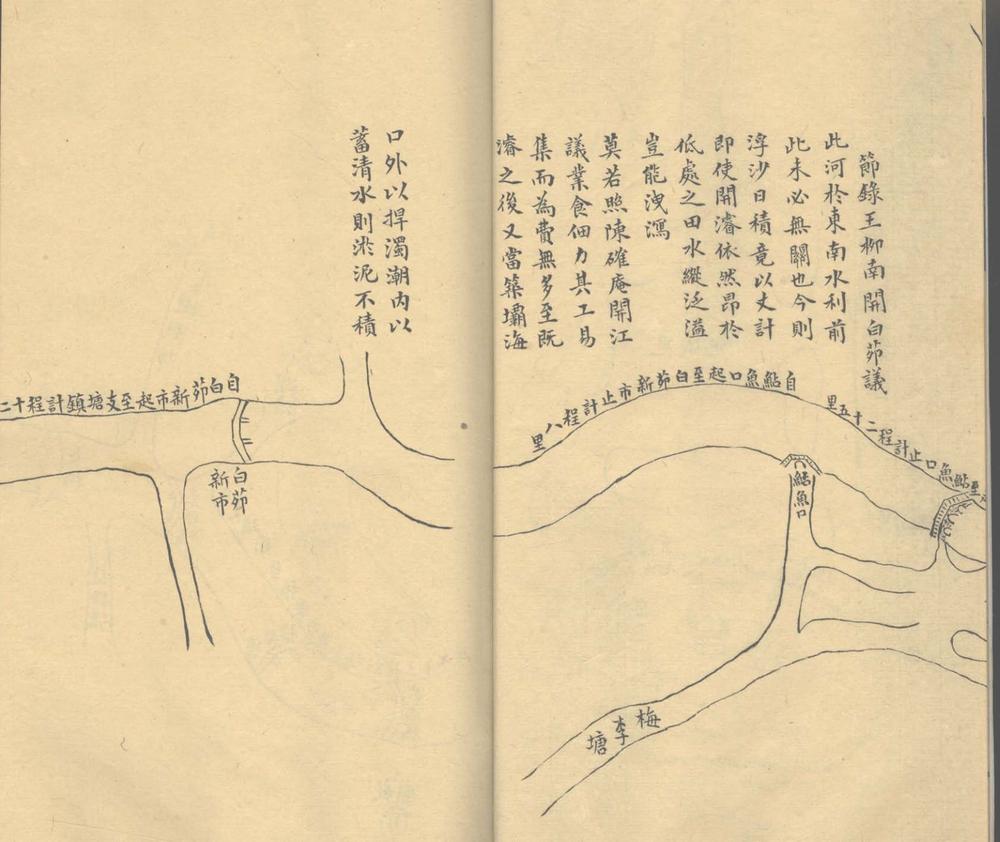 節錄王柳南開白茆議
此河於東南水利前
此未必無關也今則
浮沙日積竟以丈計
即使開濬依然昂於
低處之田水縱泛溢
豈能洩瀉
莫若照陳確庵開江
議業食佃力其工易
集而為費無多至既
濬之後又當築壩海
口外以捍濁潮內以
蓄清水則淤泥不積
至鮎魚口止計程二十五里
自鮎魚口起至白茆新市止計程八里
鮎魚口
梅李塘
自白茆新市起至支塘鎮計程十二
白茆
新市